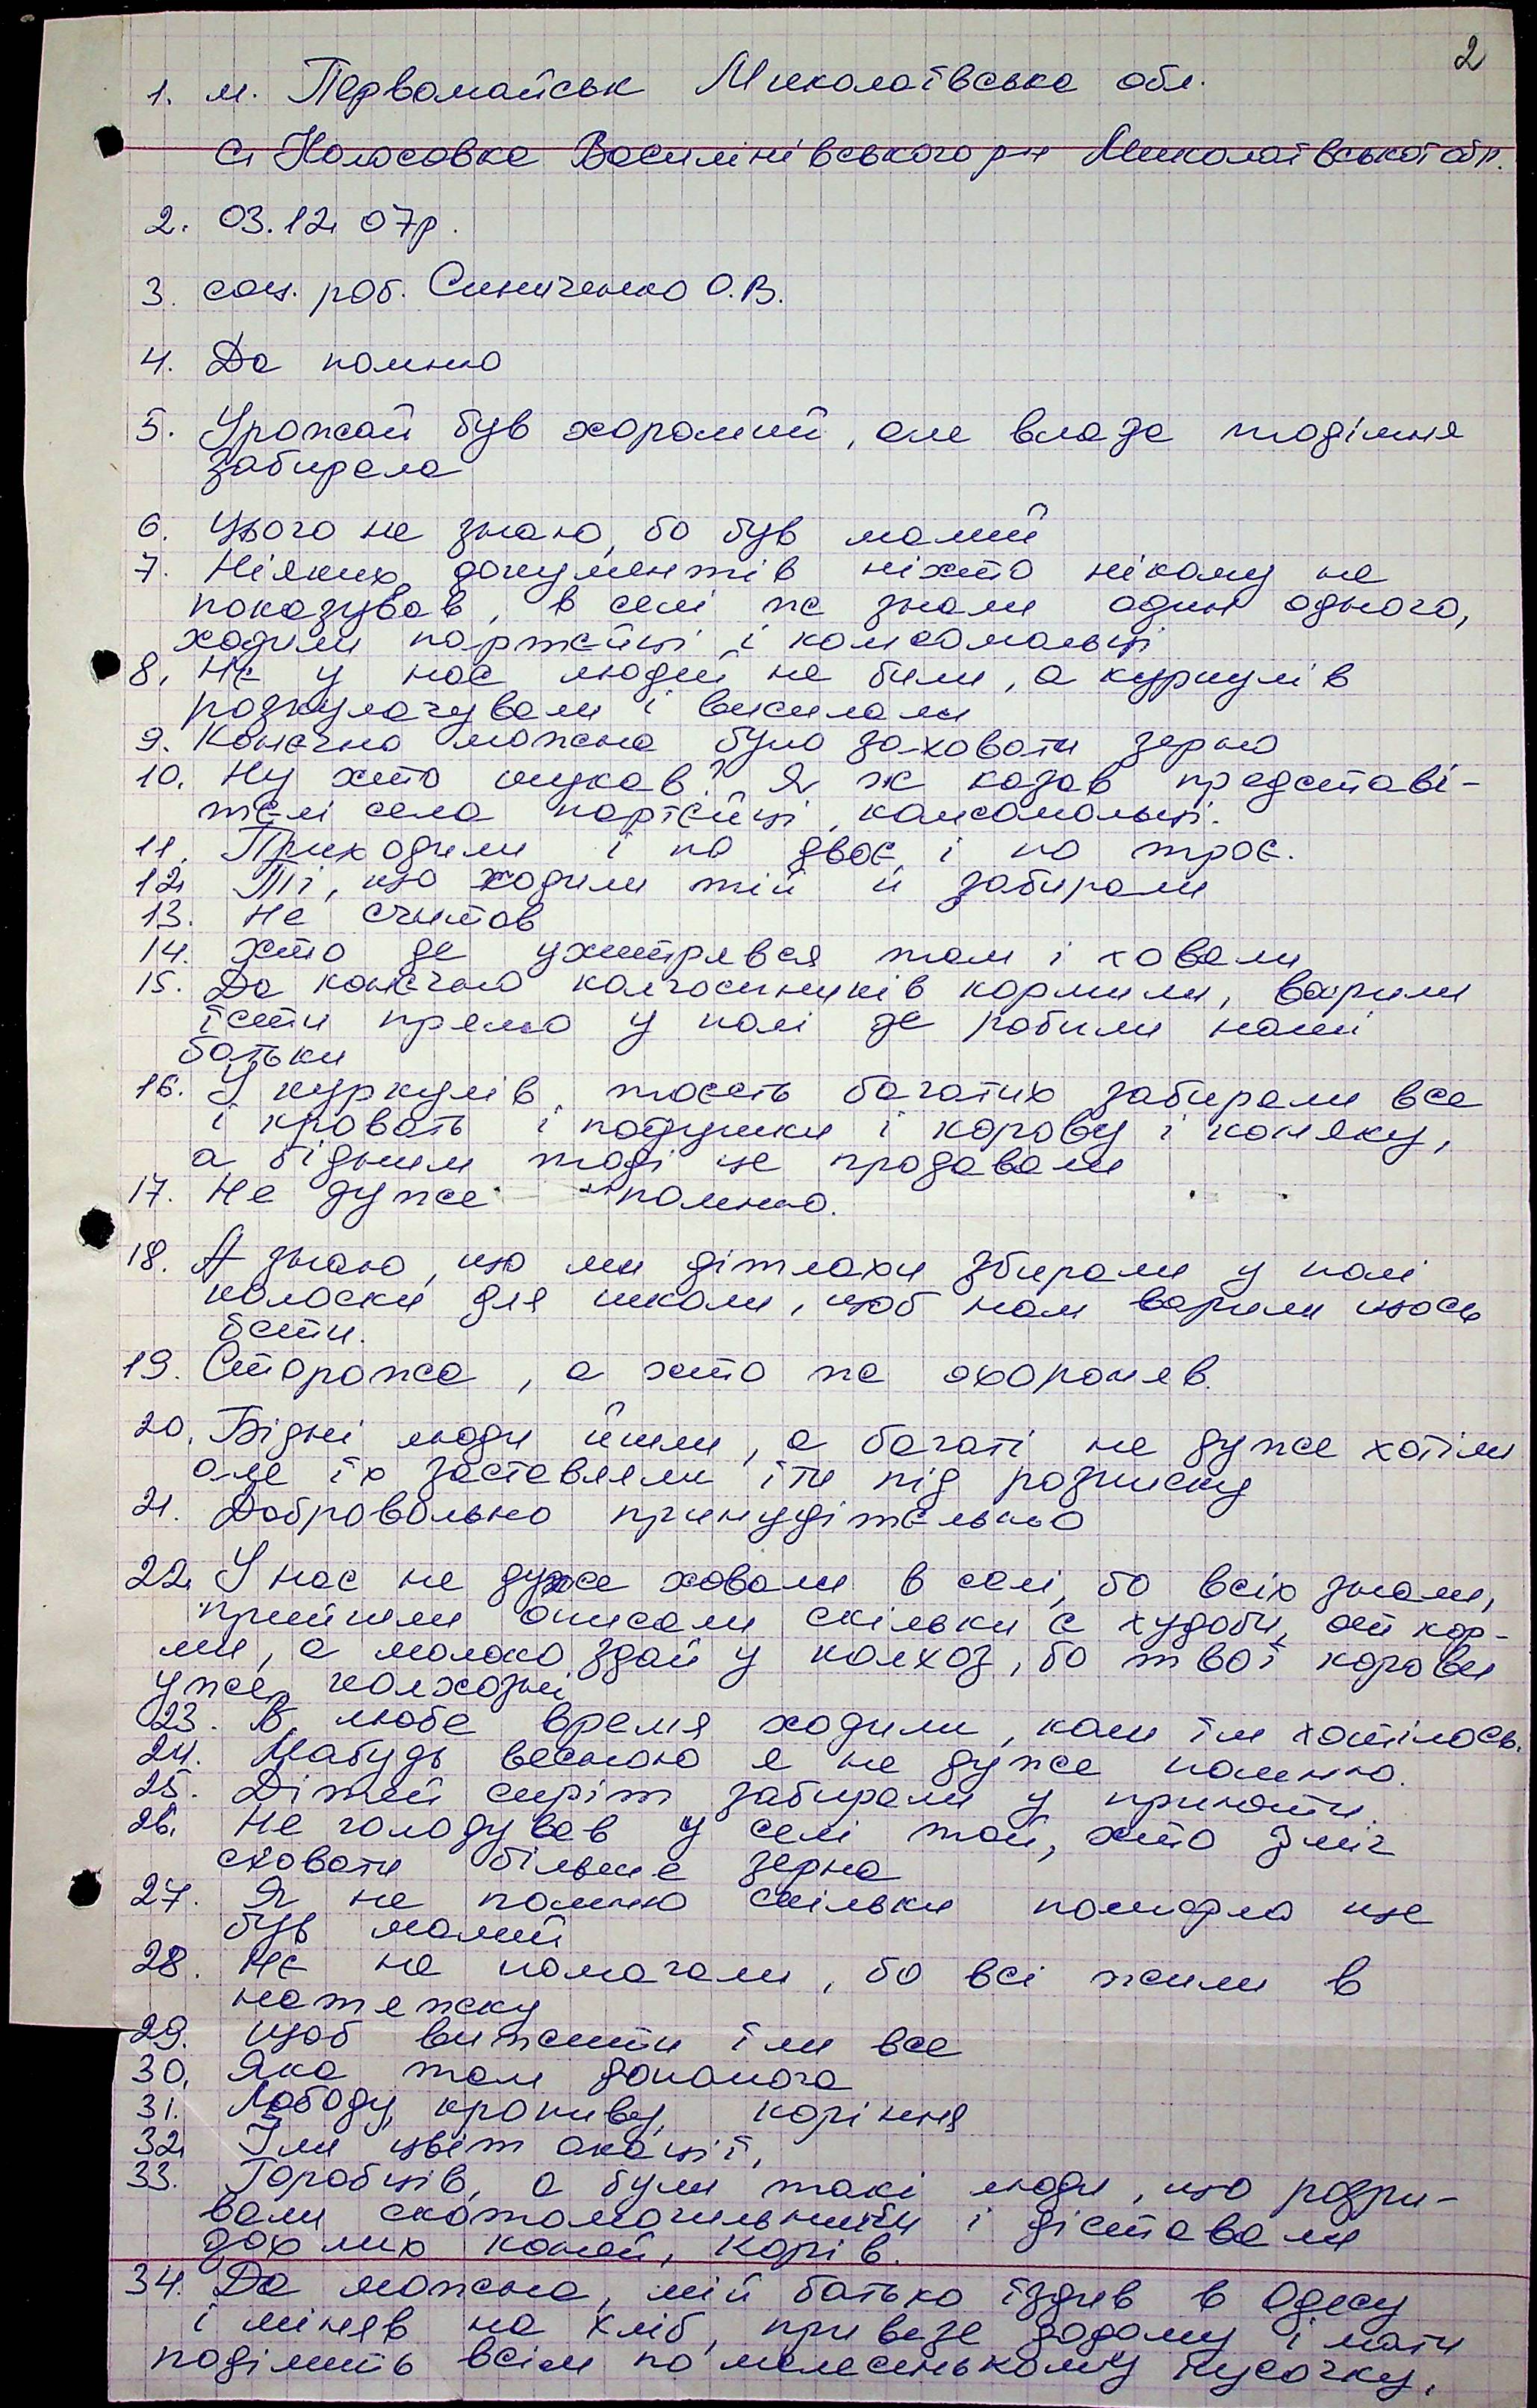 2
1. м. Первомайськ Миколаївська обл.
с. Колосовка Веселинівського р-н Миколаївської обл.
2. 03.12. 07р.
3. соц. роб. Синиченко О.В.
4. Да помню
5. Урожай був хороший, але влада тодішня
забирала
6. Цього не знаю, бо був малий
7. Ніяких документів ніхто нікому не
показував, в селі же знали один одного,
ходили партейці і комсомольці
8. Нє у нас людей не били, а куркулів
розкулачували і висилали
9. Конєчно можна було заховати зерно
10. Ну хто шукав? Я ж казав представі-
телі села партєйці, комсомольці.
11. Приходили і по двоє, і по троє.
12. Ті, що ходили тій й забирали
13. Не считав
14. Хто де ухитрявся там і ховали
15. Да конєчно колгоспників кормили, варили
їсти прямо у полі де робили наші
батьки
16. У куркулів, тоєсть багатих забирали все
і кровать і подушки і корову і коняку,
а бідним тоді це продавали
17. Не дуже помню.
18. Я знаю, що ми дітлахи збирали у полі
колоски для школи, щоб нам варили щось
їсти.
19. Сторожа, а хто же охороняв.
20. Бідні люди йшли, а багаті не дуже хотіли
але їх заставляли іти під розписку
21. Добровольно принудітельно
22. У нас не дуже ховали в селі, бо всіх знали,
прийшли описали скільки є худоби, ой кор-
ми, а молоко здай у колхоз, бо твої корови
уже колхозні
23. В любе время ходили, коли їм хотілось.
24. Мабудь весною я не дуже помню.
25. Дітей сиріт забирали у приюти.
26. Не голодував у селі той, хто зміг
сховати більше зерна
27. Я не помню скільки померло ще
був малий
28. Нє не помагали, бо всі жили в
натяжку
29. Щоб вижити їли все
30. Яка там допомога
31. Лободу, кропиву, коріння
32. Їли цвіт акації,
33. Горобців, а були такі люди, що розри-
вали скотомогильники і діставали
дохлих коней, корів.
34. Да можна, мій батько їздив в Одесу
і міняв на хліб, привезе додому і мати
поділить всім по малесенькому кусочку.